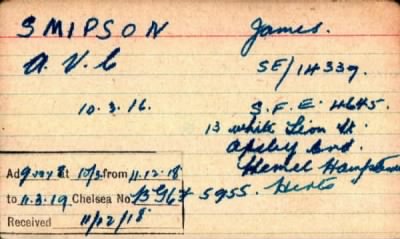 SMIPSON James.
A. V. C SE/14339.
10.3.16. S.F.E. 4645.
13 White Lion St.
Apsley End.
Hemel Hempstead
Herts
Ad at from 11.12.18
to 11.3.19 Chelsea No. 5955.
Received 11/12/18